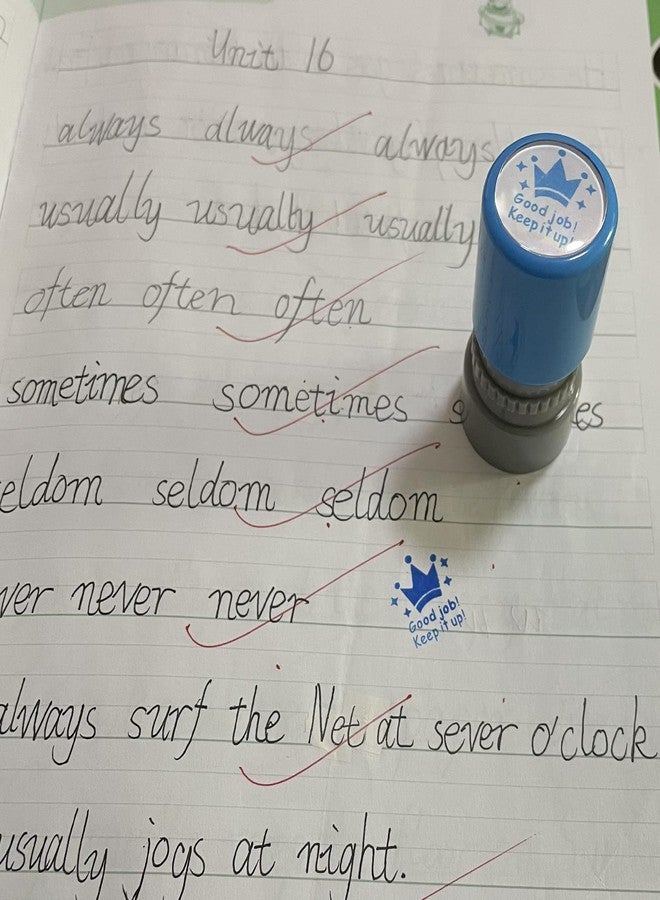 Unit 16
always always always
usually usually usually
often often often
sometimes sometimes s es
eldom seldom seldom
ver never never
always surf the Net at sever o'clock
usually jogs at night.
Good job!
Keep it up!
Good job!
Keep it up!